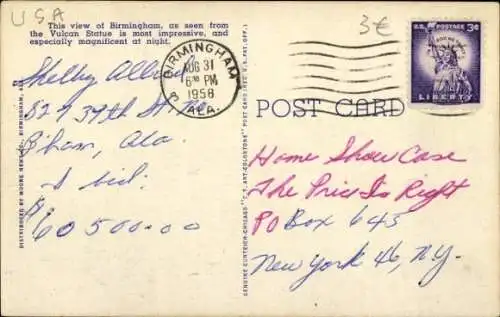 USA
3€
This view of Birmingham, as seen from
the Vulcan Statue is most impressive, and
especially magnificent at night.
Shelby
529 39th St
B'ham, Ala.
I bid.
$60500.00
BIRMINGHAM
AUG 31
6 PM
1958
ALA.
U.S. POSTAGE 3¢
IN GOD WE TRUST
LIBERTY
POST CARD
Home Show Case
The Price Is Right
PO Box 645
New York 46, N.Y.
DISTRIBUTED BY MOORE NEWS CO. BIRMINGHAM,
GENUINE CURTEICH-CHICAGO "C.T. ART-COLORTONE" POST CARD